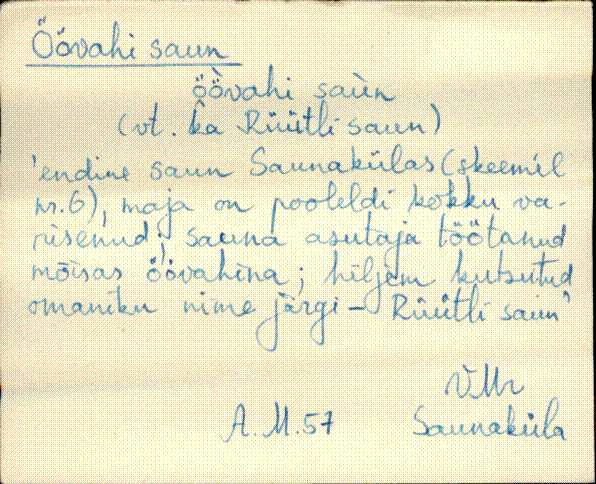 Öövahi saun
öö̀vahi saùn
(vt. ka Rüütli saun)
'endine saun Saunakülas (skeemil
nr.6), maja on pooleldi kokku va-
risenud; sauna asutaja töötanud
mõisas öövahina; hiljem kutsutud
omaniku nime järgi – Rüütli saun'
VMr
A.M.57 Saunaküla